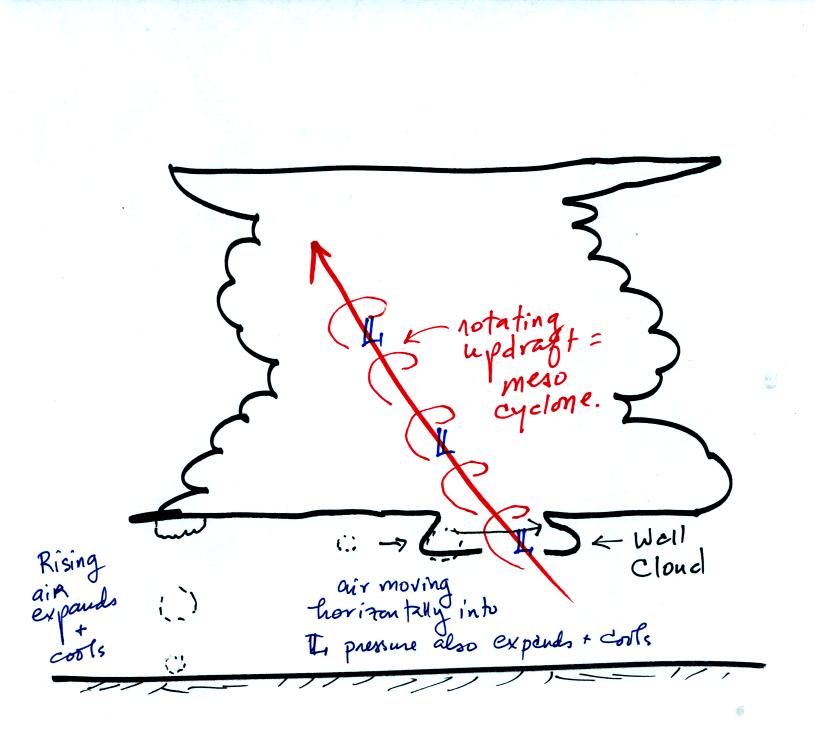 L
rotating
updraft =
meso
cyclone.
L
L
Wall
Cloud
Rising
air
expands
+
cools
air moving
horizontally into
L pressure also expands + cools